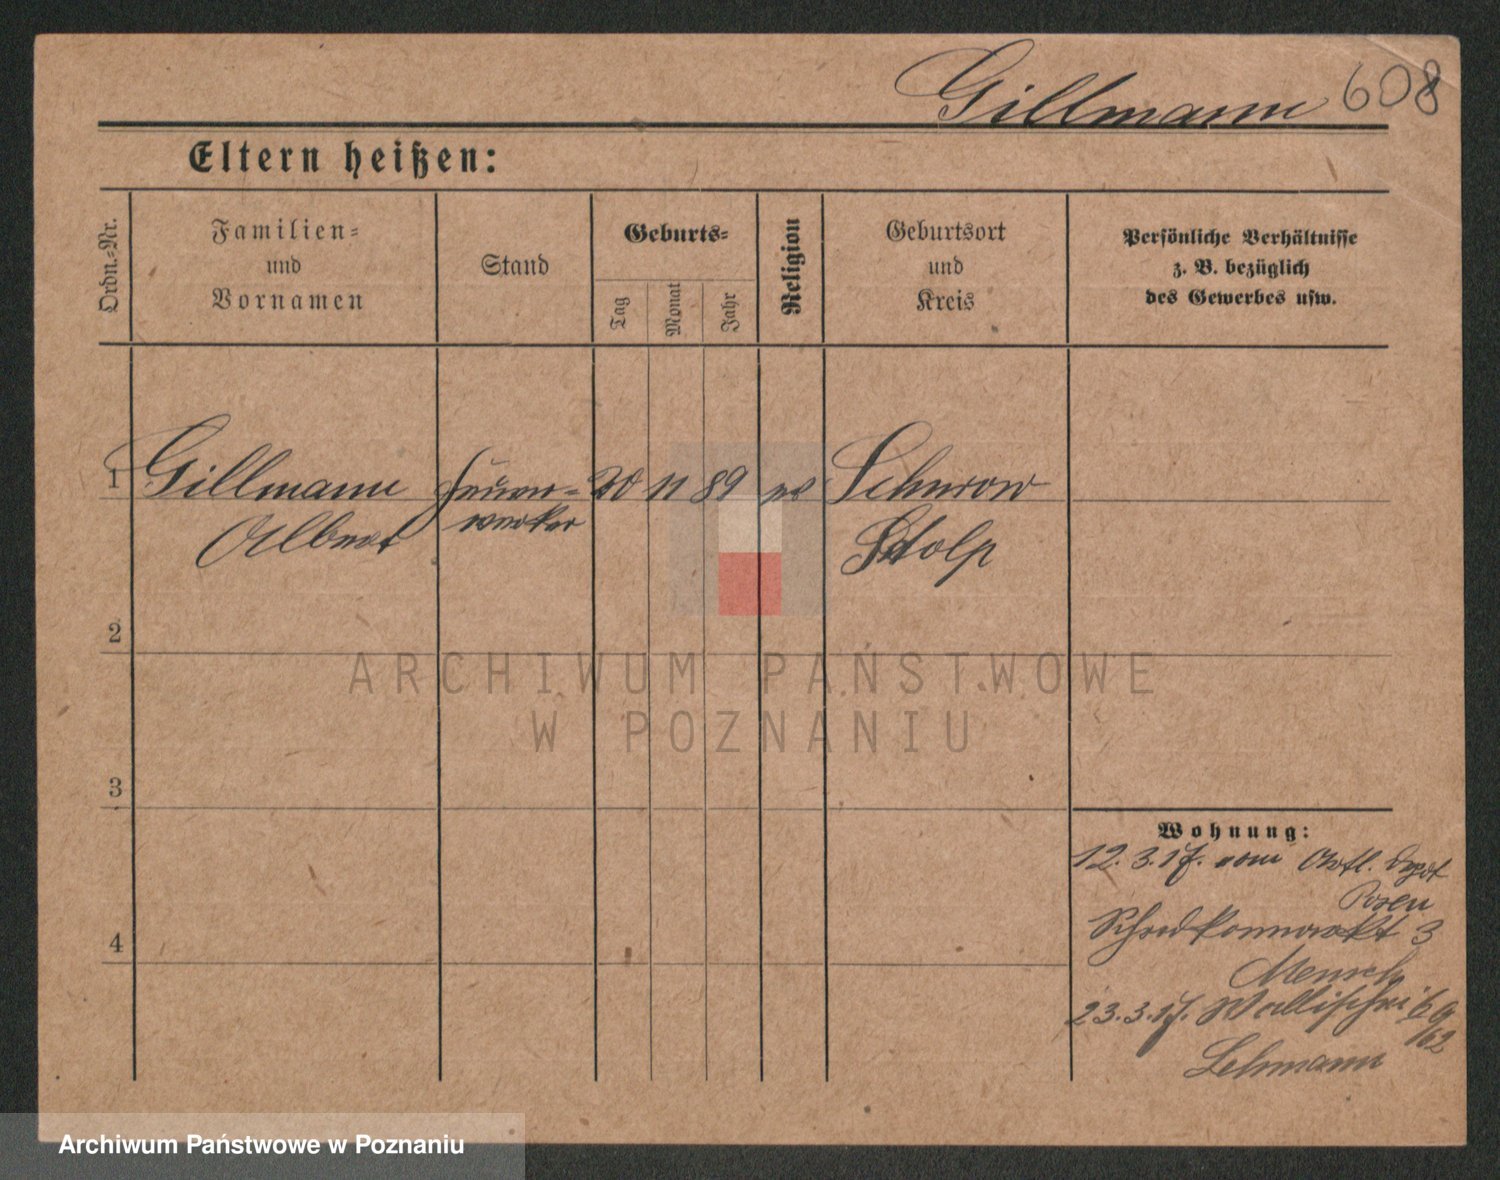 Gillmann 608
Eltern heißen:
Ordn.-Nr.
Familien-
und
Vornamen
Stand
Geburts-
Tag
Monat
Jahr
Religion
Geburtsort
und
Kreis
Persönliche Verhältnisse
z. B. bezüglich
des Gewerbes usw.
1 Gillmann Feuer- 20 11 89 ev Schurow
Albert werker Stolp
2
ARCHIWUM PAŃSTWOWE
W POZNANIU
3
Wohnung:
12.3.17. vom Artl. Depot
Posen
4
3
Mensch
23.3.17. Wallischei
Lehmann
Archiwum Państwowe w Poznaniu